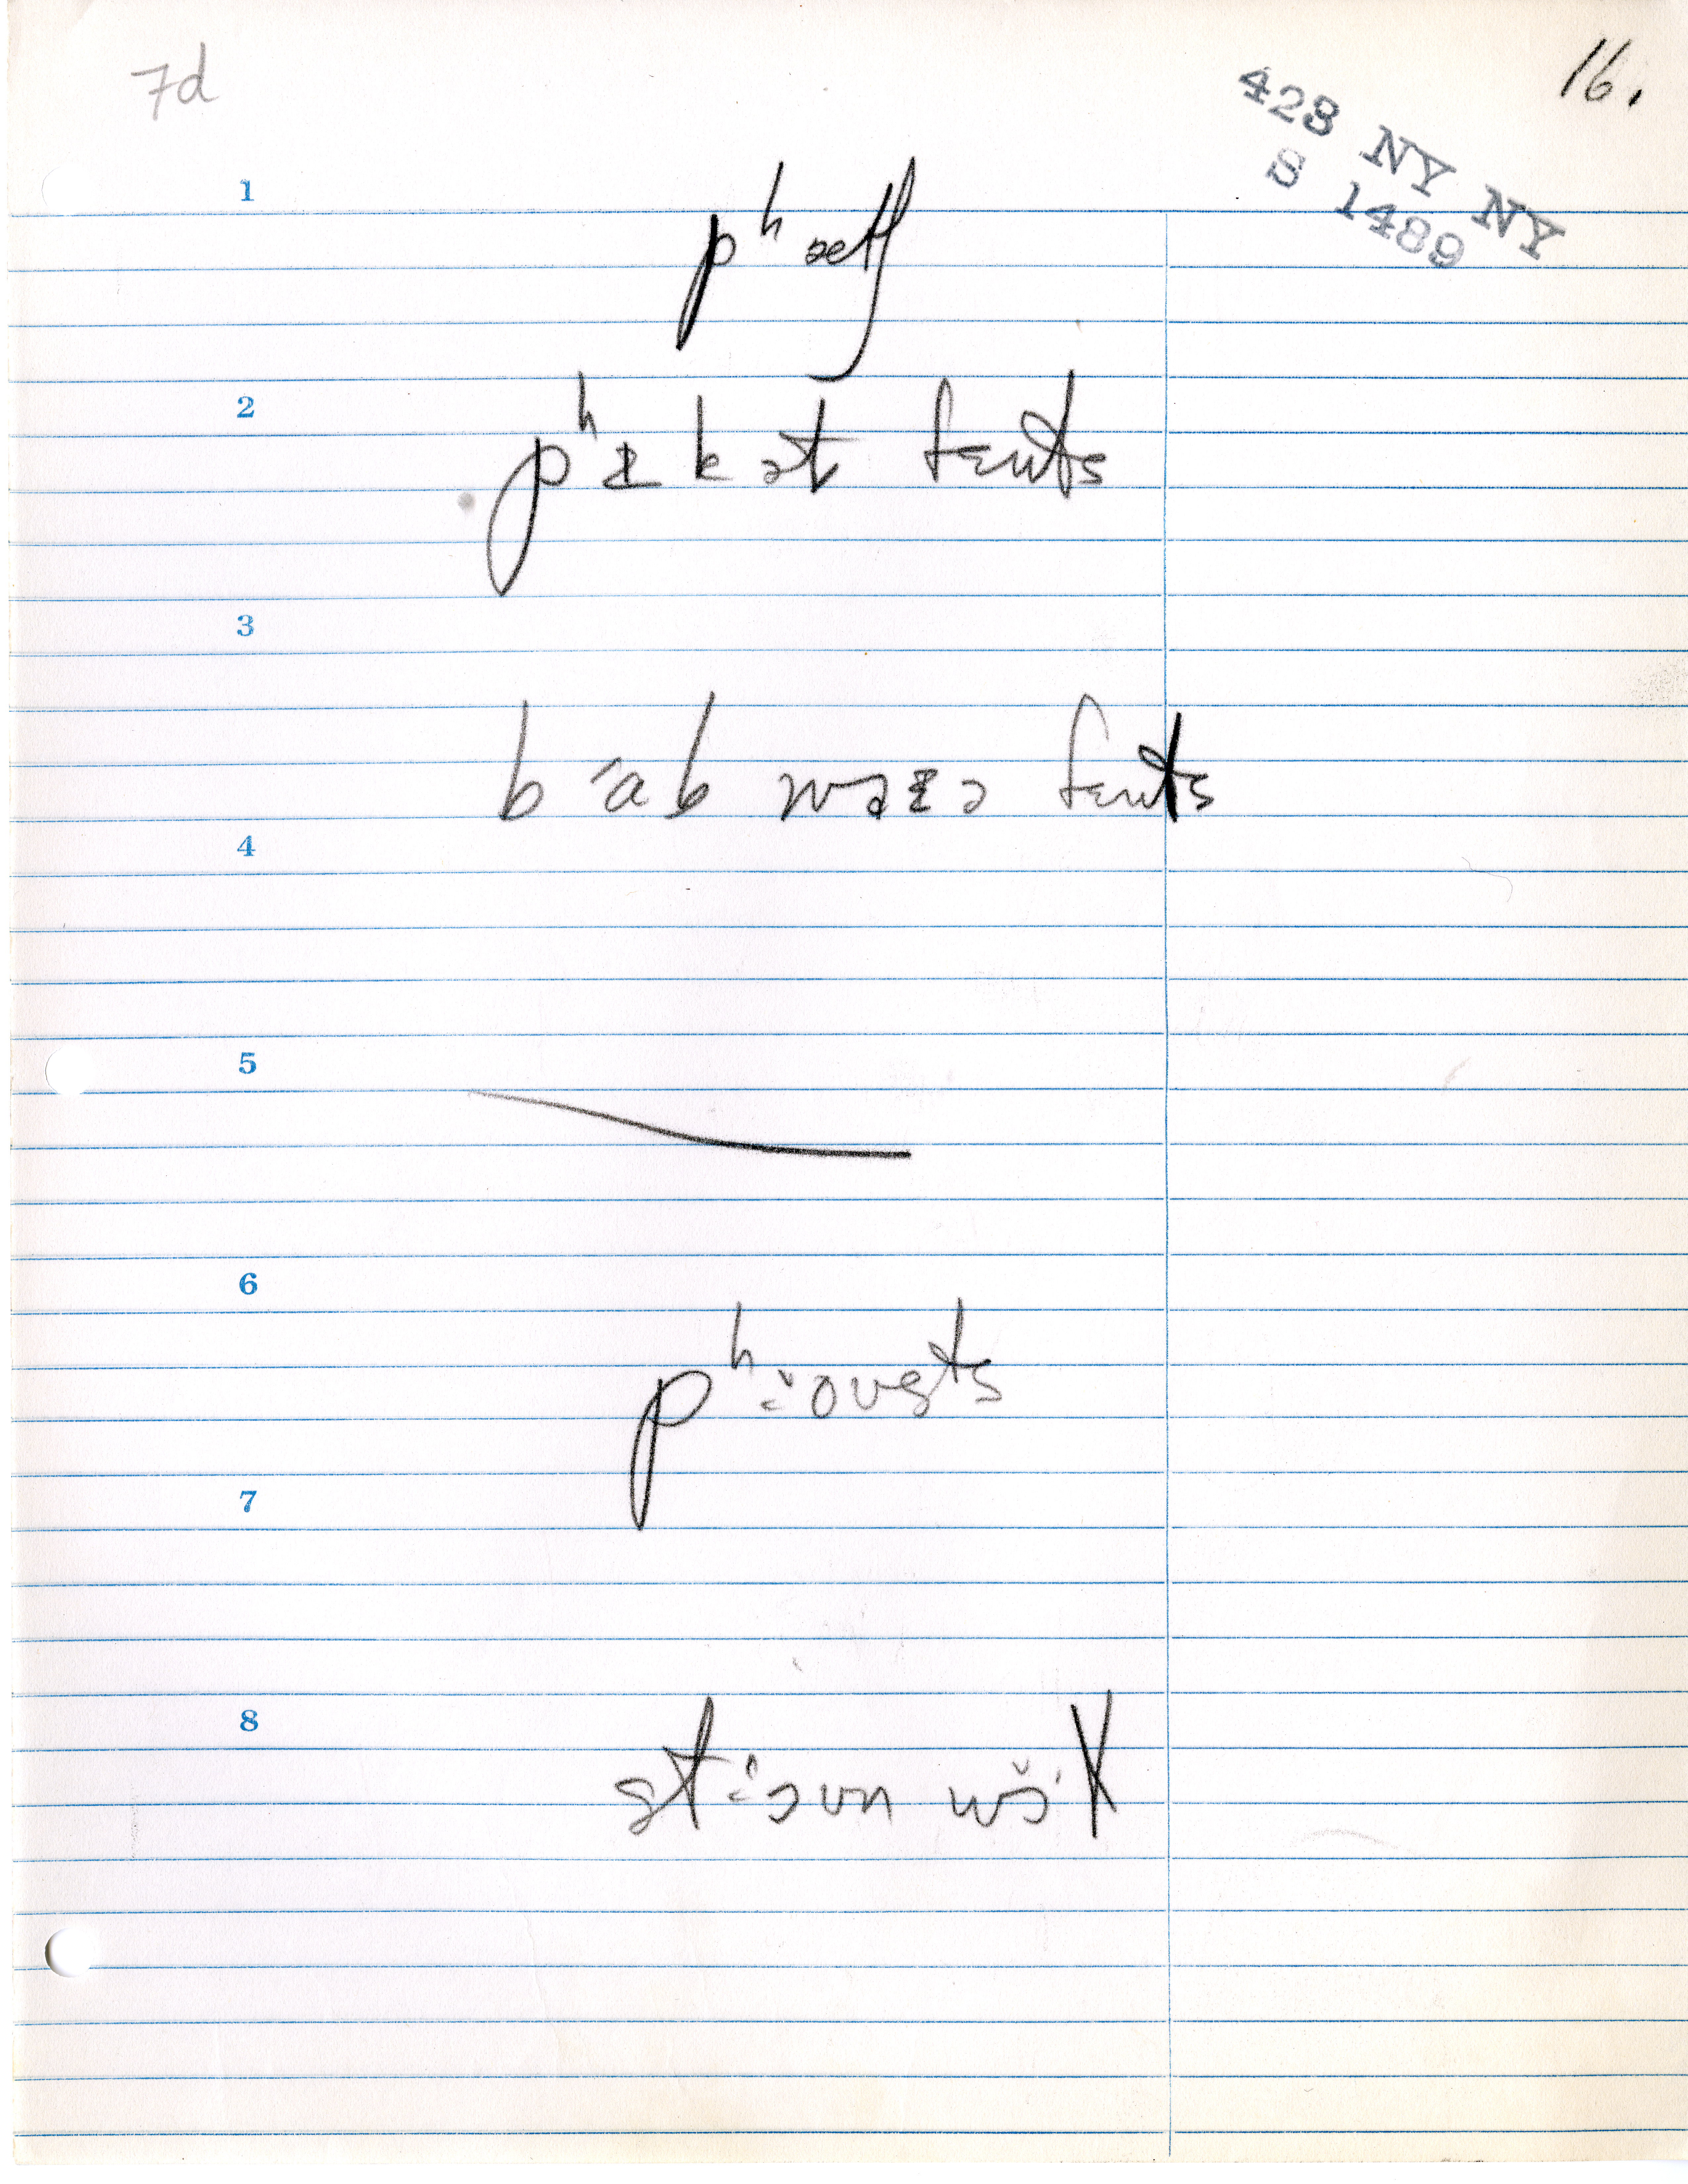 7d
16.
423 NY NY
S 1489
1
pʰætʃ
2
pʰɪkət fɛnts
3
bab waɪə fɛnts
4
5
6
pʰoʊsts
7
8
stoʊn